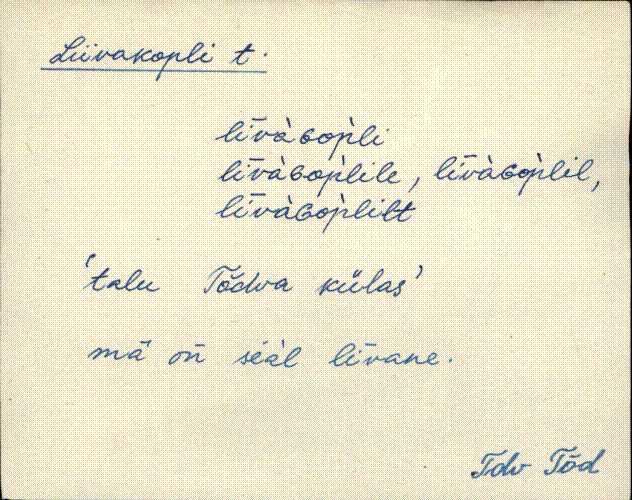 Liivakopli t.
līvàɢop̀li
līvàɢop̀lile, līvàɢop̀lil,
līvàɢop̀lilt
'talu Tõdva külas'
mā on̄ séàl līvane.
Tdv Tõd